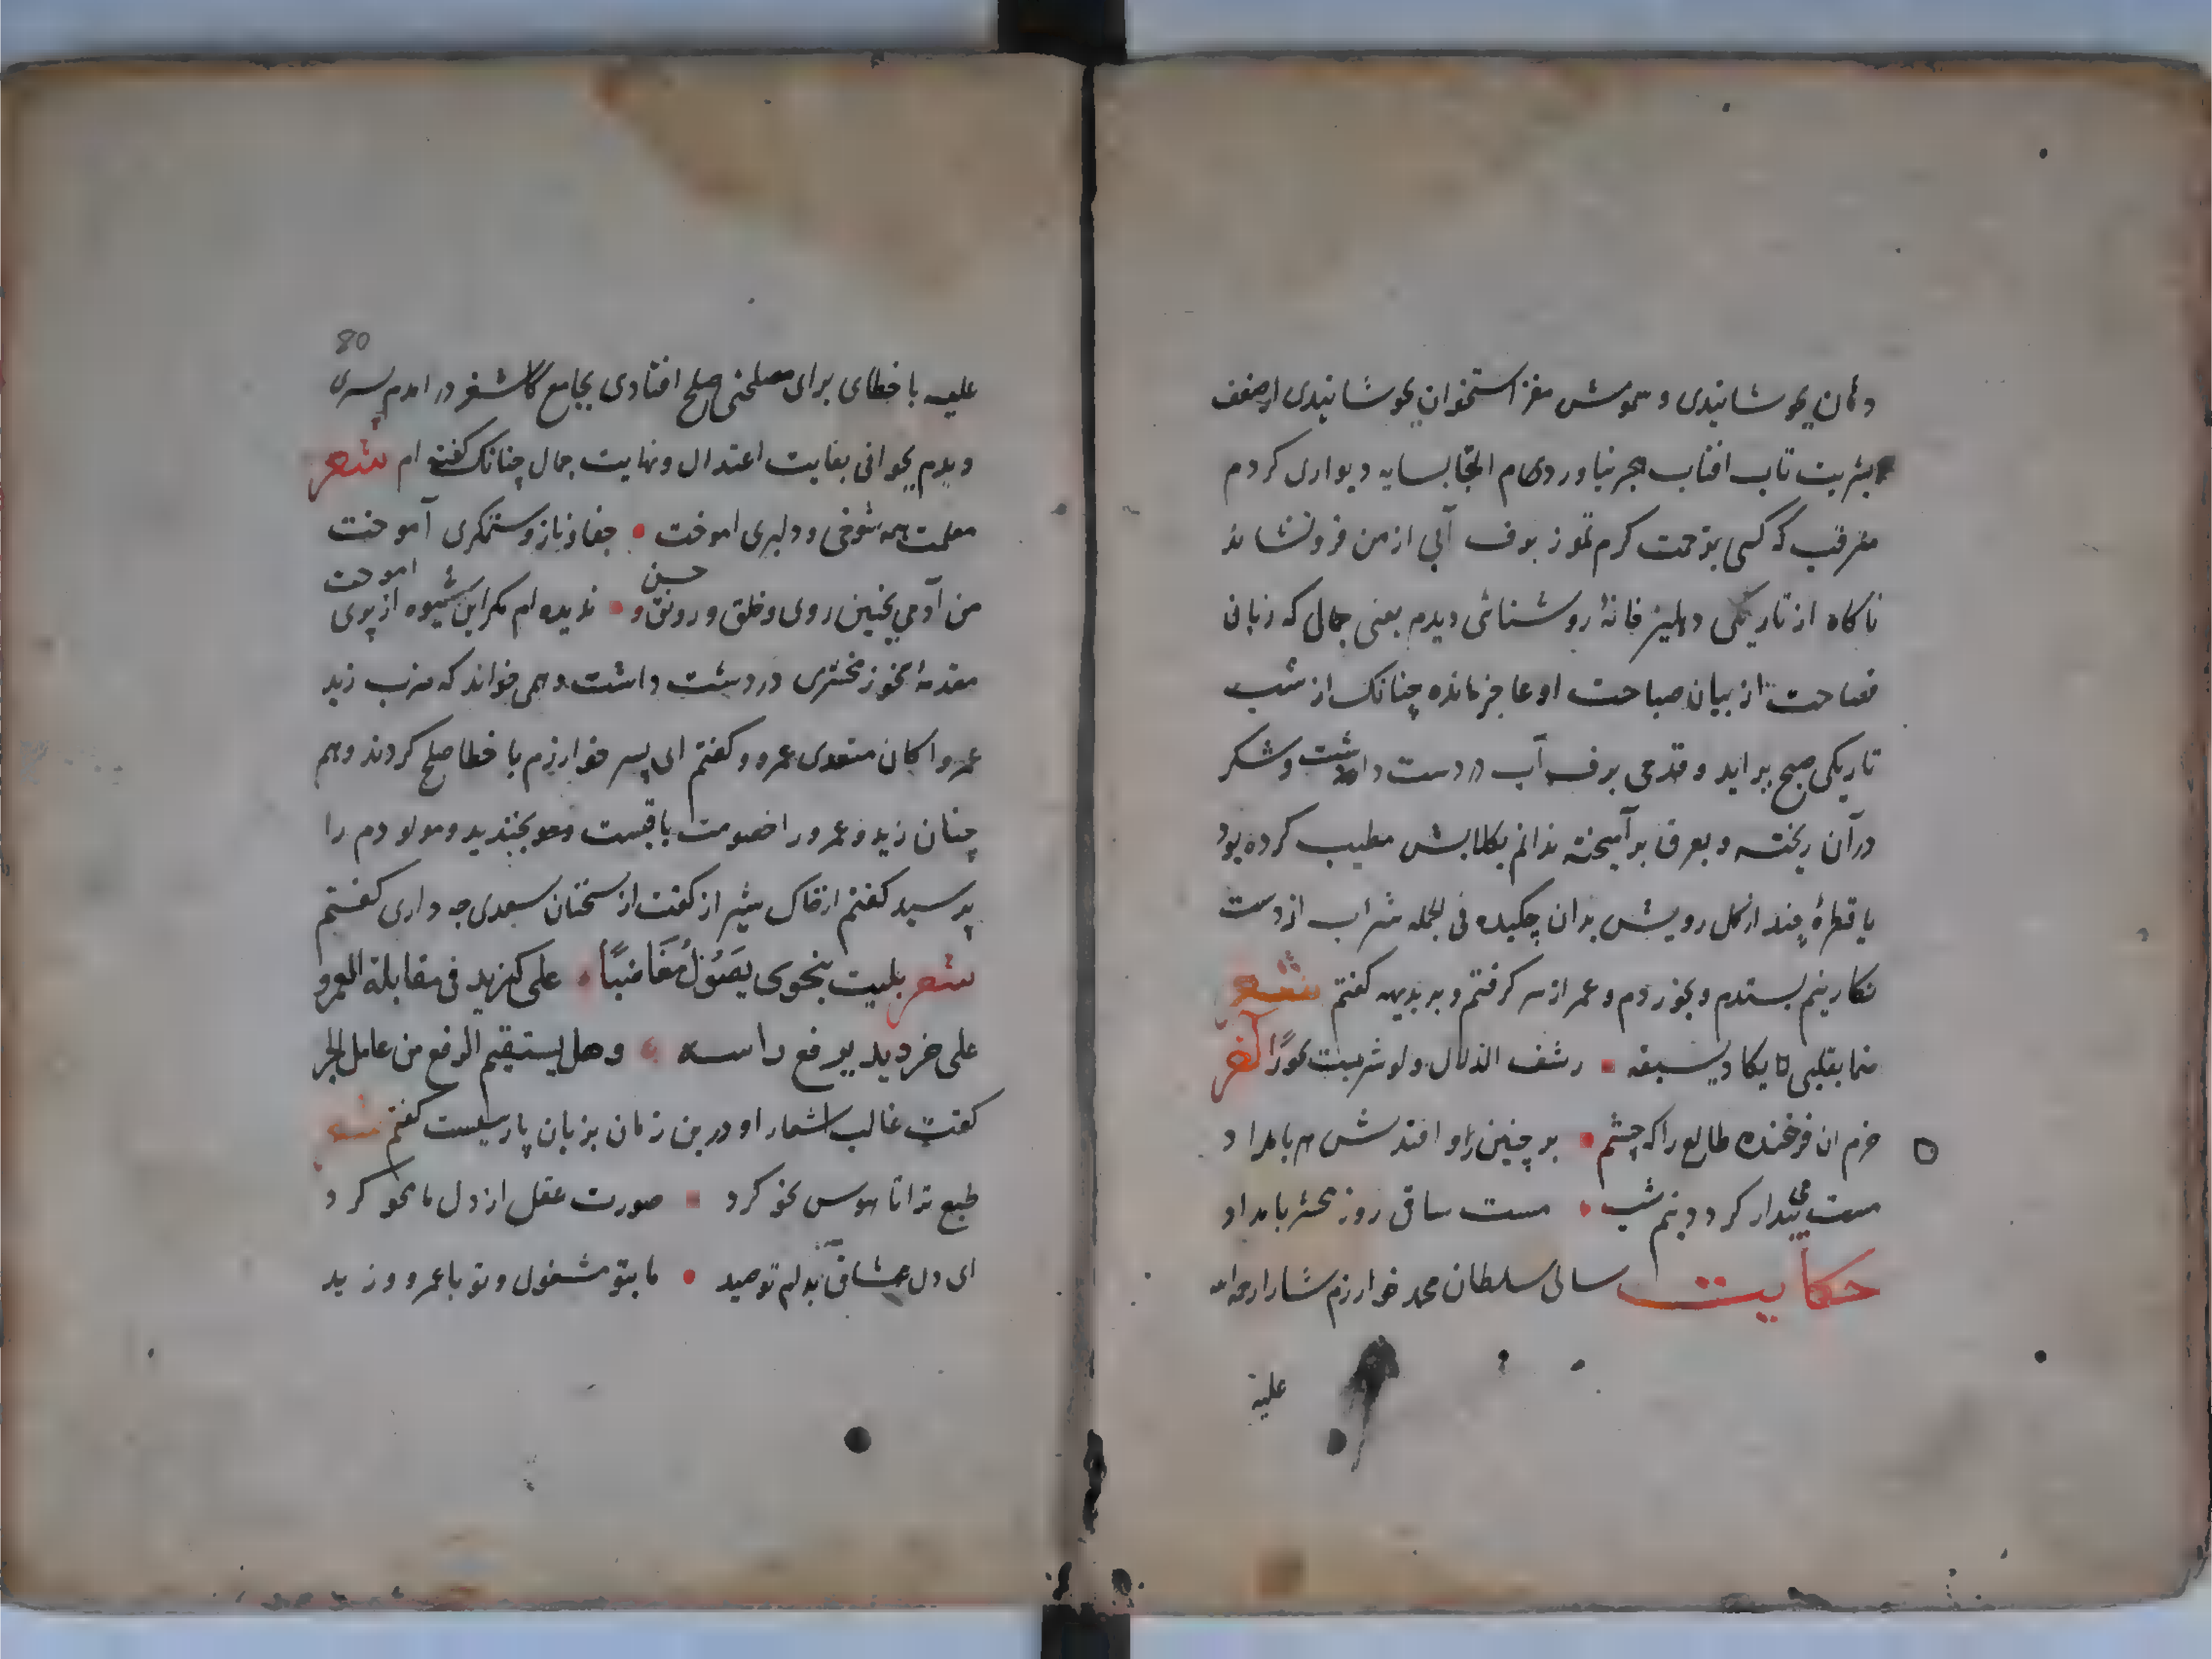 دهان بخوشانیدی و سمومش مغز استخوان بجوشانیدی از ضعف
بشریت تاب افتاب هجیر نیاوردم التجا بسایه دیواری کردم
مترقب که کسی بوحمت کرم تموز ببرف آبی از من فرونشاند
ناکاه از تاریکی دهلیز خانهٔ روشنائی دیدم یعنی جمالی که زبان
فصاحت از بیان صباحت او عاجز مانده چنانک از شب
تاریکی صبح براید و قدحی برف آب در دست داشت و شکر
در آن ریخته و بعرق بر آمیخته ندانم بکلابش مطیب کرده بود
یا قطرهٔ چند از کل رویش بدان چکیده فی الجمله شراب از دست
نکارینم بستدم و بخوردم و عمر از سر کرفتم و بر بدیهه کفتم شعر
ظما بقلبی لا یکاد یسیغه رشف الزلال ولو شربت بحورًا آخر
خرم ان فرخنده طالع را که چشم بر چنین او افتدش هر بامداد
مست می بیدار کردد نیم شب مست ساقی روز محشر بامداد
حکایت سالی سلطان محمد خوارزم شاه را رحمة الله
علیه
80
علیه با خطای برای مصلحتی صلح افتادی بجامع کاشغر در امدم پسری
دیدم بجوانی بغایت اعتدال و نهایت جمال چنانک کفته ام شعر
معلمت همه شوخی و دلبری اموخت جفا و ناز و ستمکری آموخت
من آدمی بچنین روی و خلق و رونق و حسن ندیده ام مکر این شیوه از پری اموخت
مقدمهٔ نحو زمخشری در دست داشت و همی خواند که ضرب زید
عمروا کان متعدی عمرو و کفتم ای پسر خوارزم با خطا صلح کردند و هم
چنان زید و عمرو را خصومت باقیست بخندید و مولودم را
پرسید کفتم از خاک شیراز کفت از سخنان سعدی چه داری کفتم
شعر بلیت بنحوی یصول مغاضبًا علی کزید فی مقابلة العمرو
علی جر ذید یرفع راسه وهل یستقیم الرفع من عامل الجر
کفت غالب اشعار او درین زمان بزبان پارسیست کفتم شعر
طبع ترا تا هوس نحو کرد صورت عقل از دل ما محو کرد
ای دل عشاق بدام تو صید ما بتو مشغول و تو با عمرو و زید